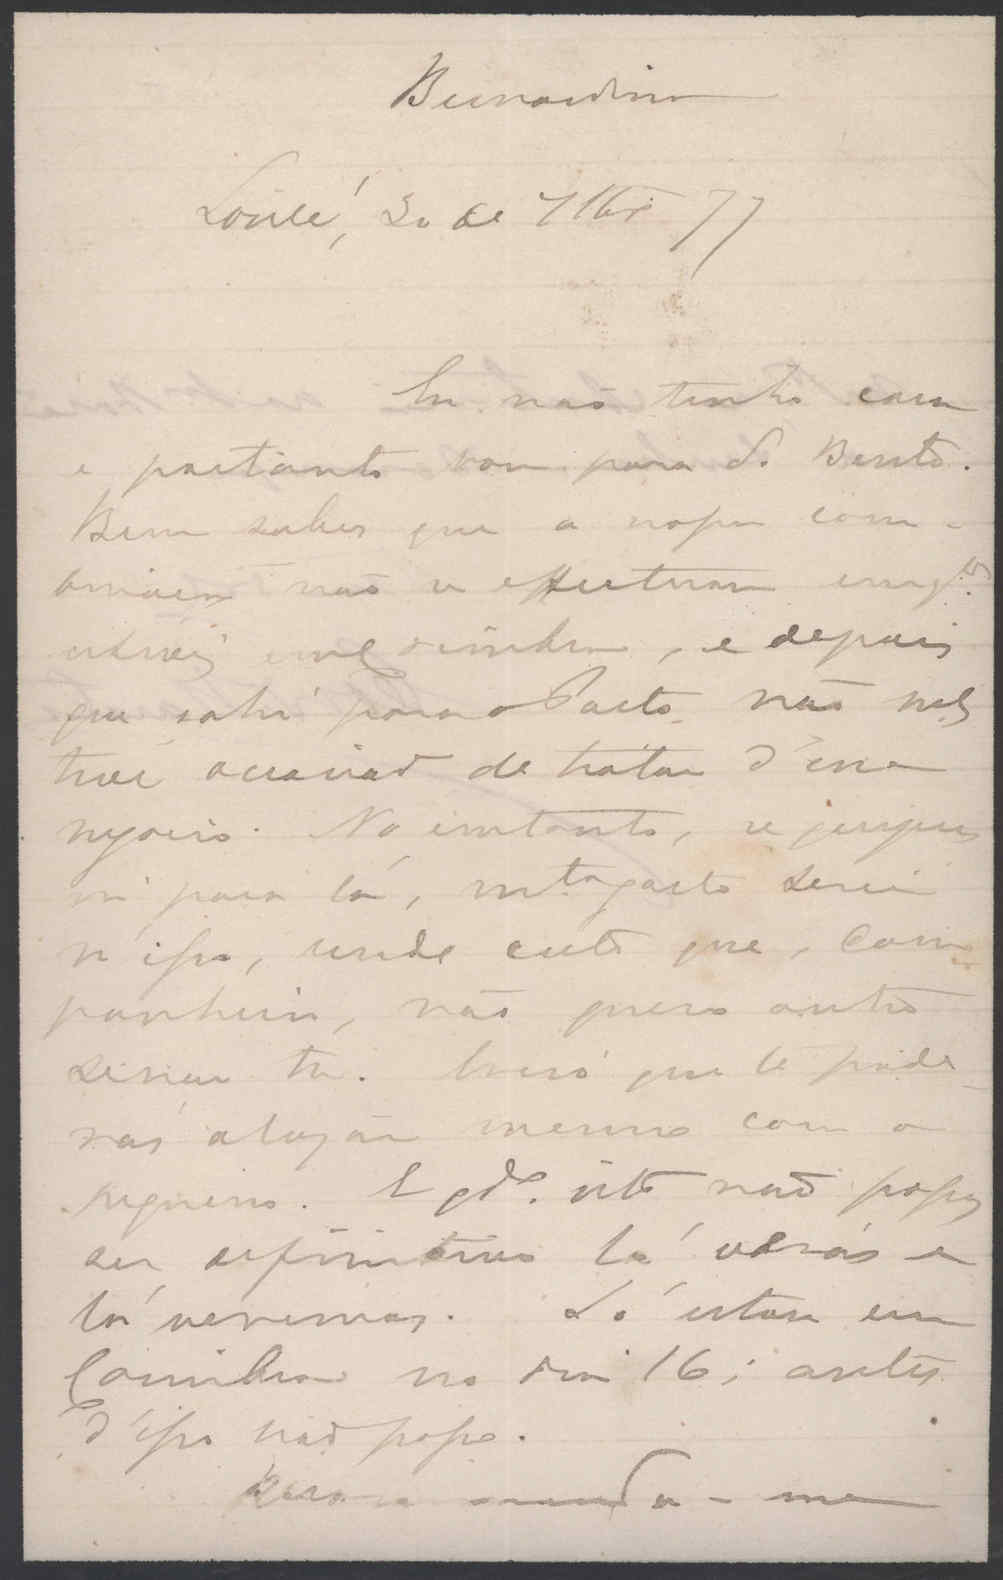 Bernardino
Loulé, 30 de 7bro 77
Eu não tenho casa
e portanto vou para S. Bento.
Bem sabes que a nossa com-
binação não se effectuou emqto
estives em Coimbra, e depois
que sahi para o Porto não mes
tive occasião de tratar d'esse
negocio. No emtanto, se quizeres
vir para lá, mto gosto terei
n'isso, sende certo que, com
panheiro, não quero outro
senão tu. Creio que te pode-
rás alojar mesmo com o
pequeno. E qdo isto não possa
ser definitivo lá virás e
lá veremos. Só estou em
Coimbra no dia 16; antes
d'isso não posso.
manda-me